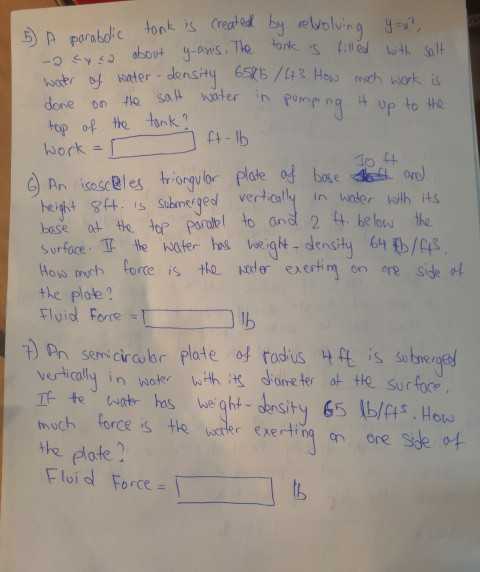 5) A parabolic tank is created by revolving y=x²,
-2 ≤ x ≤ 2 about y-axis. The tank is filled with salt
water of water-density 65lb/ft3 How much work is
done on the salt water in pumping it up to the
top of the tank?
Work = ft-lb
10 ft
6) An isosceles triangular plate of base and
height 8ft. is submerged vertically in water with its
base at the top parallel to and 2 ft. below the
surface. If the water has weight-density 64 lb/ft3.
How much force is the water exerting on one side of
the plate?
Fluid Force = lb
7) An semicircular plate of radius 4 ft is submerged
vertically in water with its diameter at the surface.
If the water has weight-density 65 lb/ft3. How
much force is the water exerting on one side of
the plate?
Fluid Force = lb